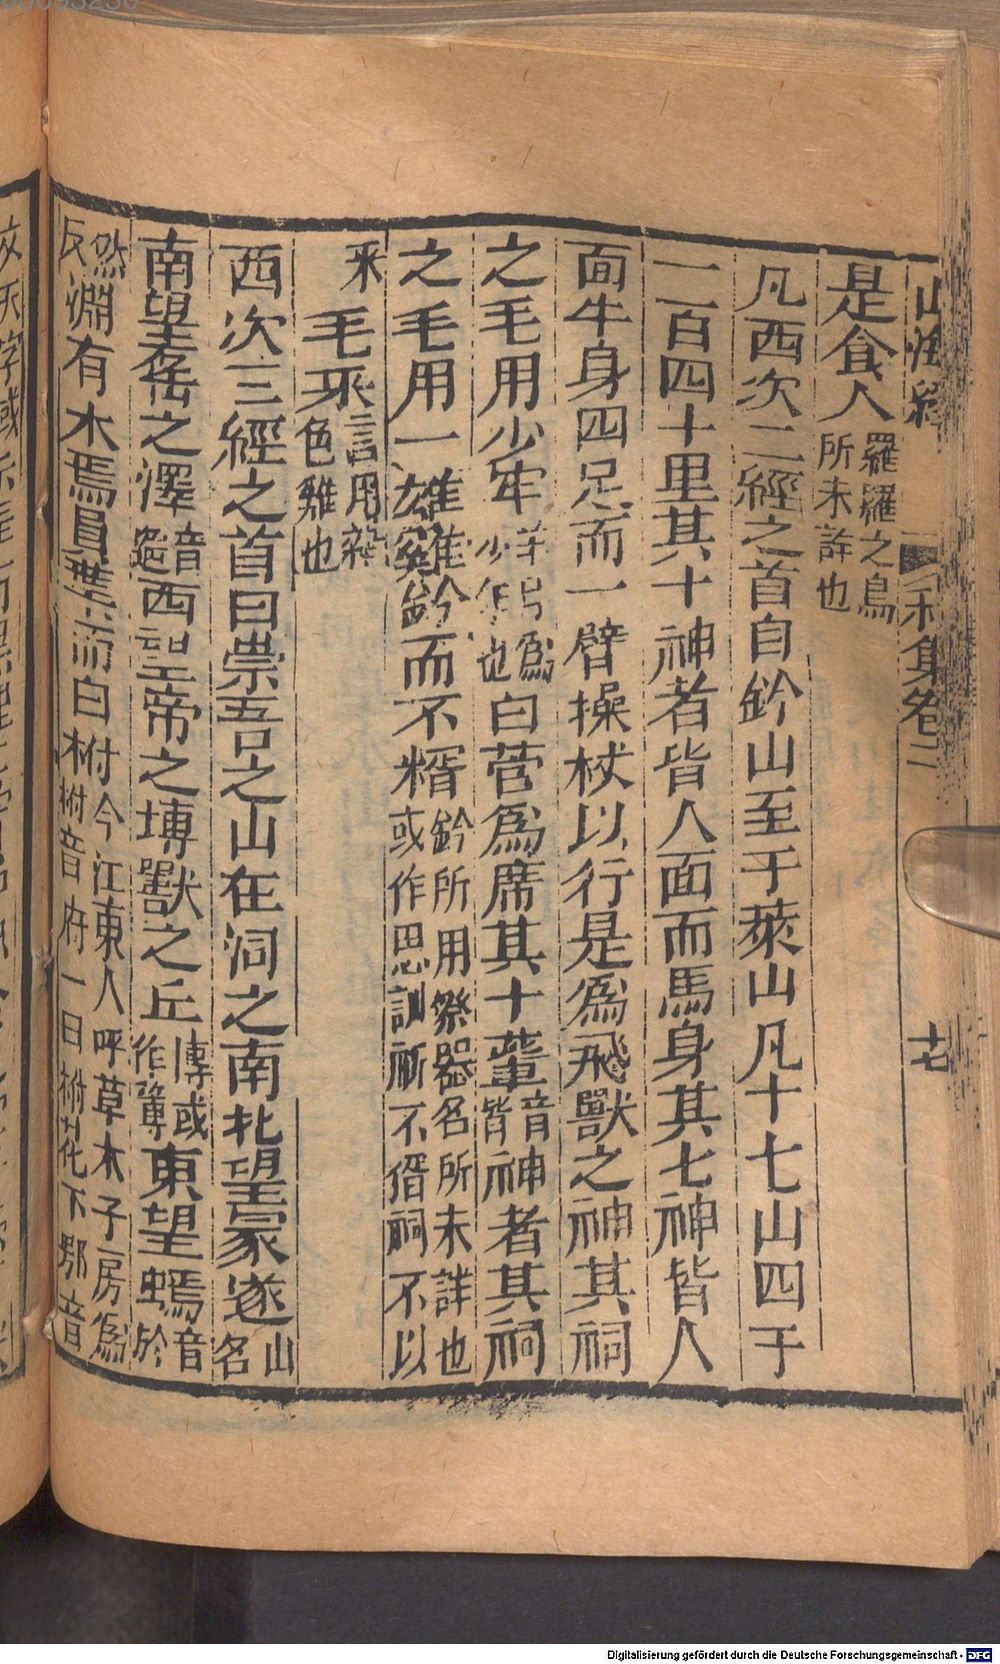 山海經
利集卷二
十七
是食人羅羅之鳥所未詳也
凡西次二經之首自鈐山至于萊山凡十七山四千
一百四十里其十神者皆人面而馬身其七神皆人
面牛身四足而一臂操杖以行是爲飛獸之神其祠
之毛用少牢羊猪爲少牢也白菅爲席其十輩音背神者其祠
之毛用一雄雞鈐而不糈鈐所用祭器名所未詳也或作思訓祈不糈祠不以
米毛采言用雜色雞也
西次三經之首曰崇吾之山在河之南北望冢遂山名
南望䍃之澤音遥西望帝之塼獸之丘塼或作簿東望䗡音於
然反淵有木焉員葉而白柎今江東人呼草木子房爲柎音府一曰柎花下鄂音
Digitalisierung gefördert durch die Deutsche Forschungsgemeinschaft - DFG